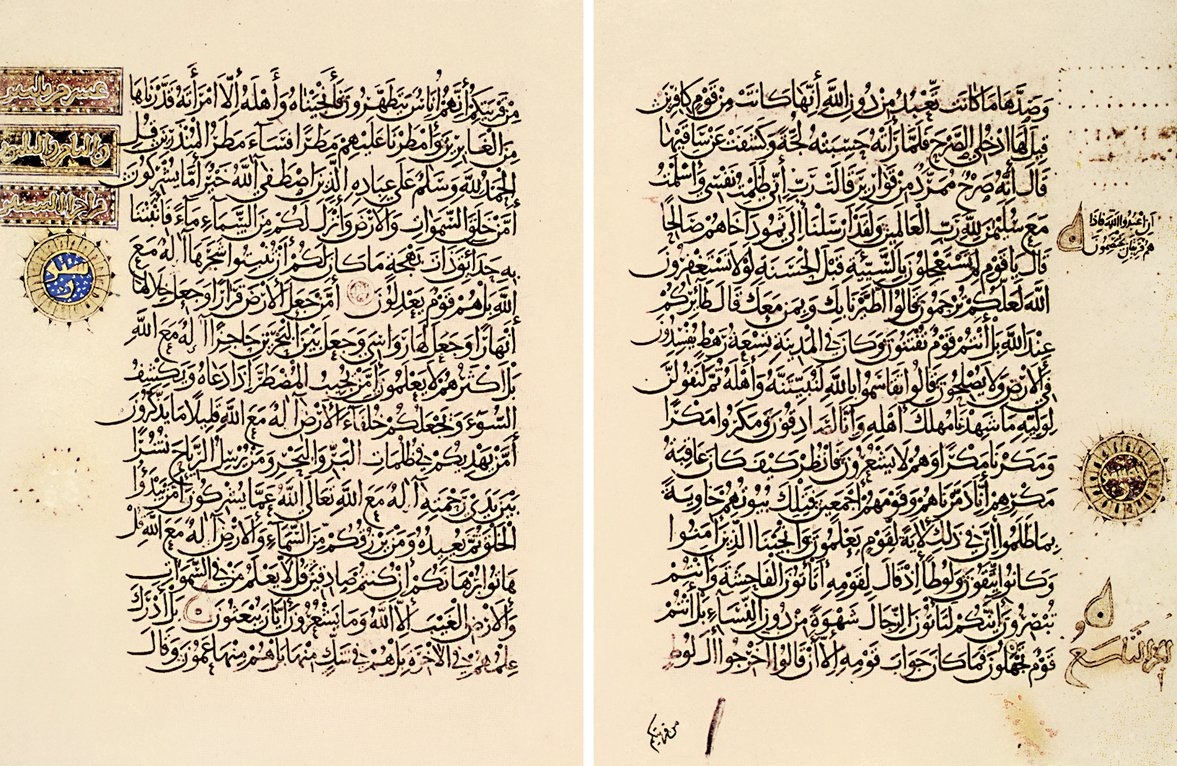 وصدها ما كانت تعبد من دون الله إنها كانت من قوم كافرين
قيل لها ادخلي الصرح فلما رأته حسبته لجة وكشفت عن ساقيها
قال إنه صرح ممرد من قوارير قالت رب إني ظلمت نفسي وأسلمت
مع سليمن لله رب العالمين ولقد أرسلنا إلى ثمود أخاهم صالحا
أن اعبدوا الله فإذا
هم فريقان يختصمون
قال يا قوم لم تستعجلون بالسيئة قبل الحسنة لولا تستغفرون
الله لعلكم ترحمون قالوا اطيرنا بك وبمن معك قال طائركم
عند الله بل أنتم قوم تفتنون وكان في المدينة تسعة رهط يفسدون
في الأرض ولا يصلحون قالوا تقاسموا بالله لنبيتنه وأهله ثم لنقولن
لوليه ما شهدنا مهلك أهله وإنا لصادقون ومكروا مكرا
ومكرنا مكرا وهم لا يشعرون فانظر كيف كان عاقبة
مكرهم أنا دمرناهم وقومهم أجمعين فتلك بيوتهم خاوية
بما ظلموا إن في ذلك لآية لقوم يعلمون وأنجينا الذين آمنوا
وكانوا يتقون ولوطا إذ قال لقومه أتأتون الفاحشة وأنتم
تبصرون أئنكم لتأتون الرجال شهوة من دون النساء بل أنتم
قوم تجهلون فما كان جواب قومه إلا أن قالوا أخرجوا آل لوط
من قريتكم
من قريتكم إنهم أناس يتطهرون فأنجيناه وأهله إلا امرأته قدرناها
من الغابرين وأمطرنا عليهم مطرا فساء مطر المنذرين قل
الحمد لله وسلم على عباده الذين اصطفى آلله خير أما يشركون
أمن خلق السموات والأرض وأنزل لكم من السماء ماء فأنبتنا
به حدائق ذات بهجة ما كان لكم أن تنبتوا شجرها أإله مع
الله بل هم قوم يعدلون أمن جعل الأرض قرارا وجعل خلالها
أنهارا وجعل لها رواسي وجعل بين البحرين حاجزا أإله مع الله
بل أكثرهم لا يعلمون أمن يجيب المضطر إذا دعاه ويكشف
السوء ويجعلكم خلفاء الأرض أإله مع الله قليلا ما يذكرون
أمن يهديكم في ظلمات البر والبحر ومن يرسل الرياح نشرا
بين يدي رحمته أإله مع الله تعالى الله عما يشركون أمن يبدؤا
الخلق ثم يعيده ومن يرزقكم من السماء والأرض أإله مع الله قل
هاتوا برهانكم إن كنتم صادقين قل لا يعلم من في السموات
والأرض الغيب إلا الله وما يشعرون أيان يبعثون بل أدرك
علمهم في الآخرة بل هم في شك منها بل هم منها عمون وقال